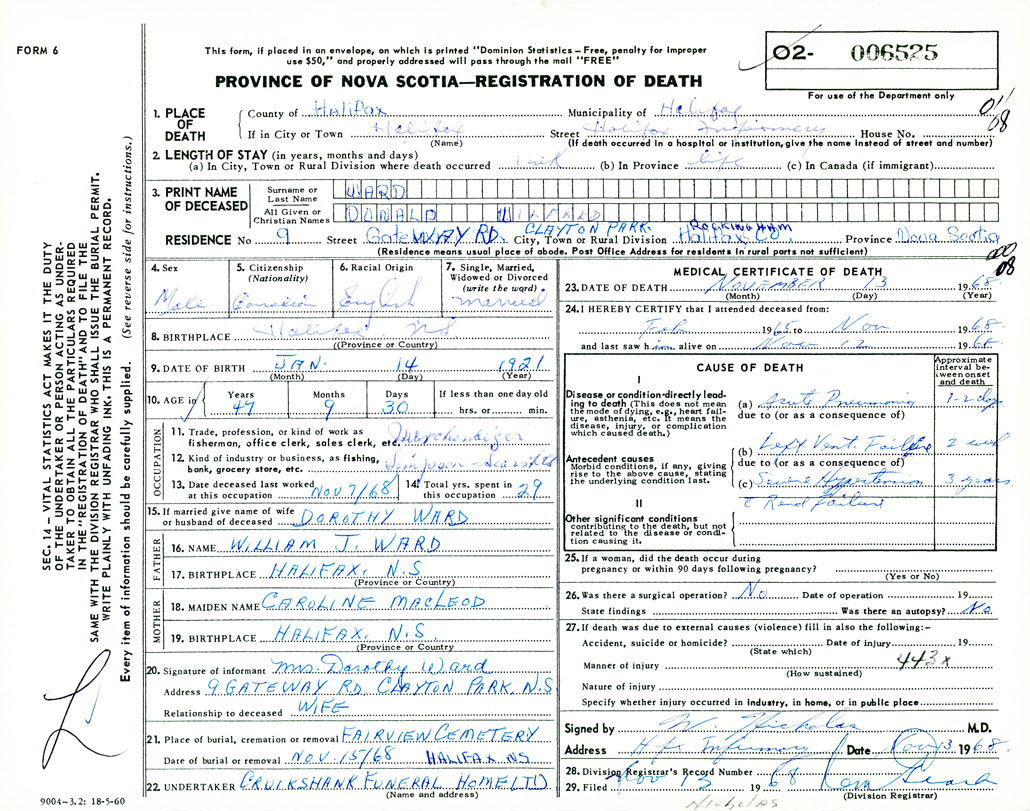 FORM 6
This form, if placed in an envelope, on which is printed "Dominion Statistics – Free, penalty for improper
use $50," and properly addressed will pass through the mail "FREE"
PROVINCE OF NOVA SCOTIA—REGISTRATION OF DEATH
02- 006525
For use of the Department only
01/08
1. PLACE OF DEATH
County of Halifax Municipality of Halifax
If in City or Town Halifax Street Halifax Infirmary House No.
(Name) (If death occurred in a hospital or institution, give the name instead of street and number)
2. LENGTH OF STAY (in years, months and days)
(a) In City, Town or Rural Division where death occurred 1 wk (b) In Province life (c) In Canada (if immigrant)
3. PRINT NAME OF DECEASED
Surname or Last Name WARD
All Given or Christian Names DONALD WILFRED
CLAYTON PARK. ROCKINGHAM
RESIDENCE No 9 Street GateWAY RD. City, Town or Rural Division Halifax Co. Province Nova Scotia
(Residence means usual place of abode. Post Office Address for residents in rural parts not sufficient)
08
4. Sex
Male
5. Citizenship
(Nationality)
Canadian
6. Racial Origin
English
7. Single, Married,
Widowed or Divorced
(write the word)
married
8. BIRTHPLACE Halifax NS
((Province or Country)
9. DATE OF BIRTH JAN. 14 1921
(Month) (Day) (Year)
10. AGE in
Years Months Days If less than one day old
47 9 30 hrs. or min.
OCCUPATION
11. Trade, profession, or kind of work as
fisherman, office clerk, sales clerk, etc. Merchandizer
12. Kind of industry or business, as fishing,
bank, grocery store, etc. Simpson-Sears Ltd
13. Date deceased last worked
at this occupation Nov 7/68
14. Total yrs. spent in
this occupation 29
15. If married give name of wife
or husband of deceased DOROTHY WARD
FATHER
16. NAME WILLIAM J. WARD
17. BIRTHPLACE HALIFAX. N.S
(Province or Country)
MOTHER
18. MAIDEN NAME CAROLINE MACLEOD
19. BIRTHPLACE HALIFAX. N.S.
(Province or Country)
20. Signature of informant Mrs. Dorothy Ward
Address 9 GATEWAY RD. CLAYTON PARK. N.S
Relationship to deceased WIFE
21. Place of burial, cremation or removal FAIRVIEW CEMETERY
Date of burial or removal NOV. 15/68 HALIFAX. NS
22. UNDERTAKER CRUIKSHANK FUNERAL HOME LTD
(Name and address)
MEDICAL CERTIFICATE OF DEATH
23. DATE OF DEATH NOVEMBER 13 1968
(Month) (Day) (Year)
24. I HEREBY CERTIFY that I attended deceased from:
Feb 1965 to Nov 1968
and last saw him alive on Nov 12 1968
CAUSE OF DEATH
Approximate
interval be-
tween onset
and death
I
Disease or condition directly lead-
ing to death (This does not mean
the mode of dying, e.g., heart fail-
ure, asthenia, etc. It means the
disease, injury, or complication
which caused death.)
(a) Acute Pneumonia 1-2 days
due to (or as a consequence of)
(b) Left Vent. Failure 2 wk
Antecedent causes
Morbid conditions, if any, giving
rise to the above cause, stating
the underlying condition last.
due to (or as a consequence of)
(c) Severe Hypertension 3 years
c Renal Failure
II
Other significant conditions
contributing to the death, but not
related to the disease or condi-
tion causing it.
25. If a woman, did the death occur during
pregnancy or within 90 days following pregnancy?
(Yes or No)
26. Was there a surgical operation? No Date of operation 19
State findings Was there an autopsy? No
27. If death was due to external causes (violence) fill in also the following:–
Accident, suicide or homicide? Date of injury 19
(State which)
443x
Manner of injury
(How sustained)
Nature of injury
Specify whether injury occurred in industry, in home, or in public place
Signed by W. Nicholas M.D.
Address Hfx Infirmary Date Nov 13 1968
28. Division Registrar's Record Number
29. Filed Nov 13 1968
(Division Registrar)
Nicholas
SEC. 14 – VITAL STATISTICS ACT MAKES IT THE DUTY
OF THE UNDERTAKER OR PERSON ACTING AS UNDER-
TAKER TO OBTAIN ALL THE PARTICULARS REQUIRED
IN THE "REGISTRATION OF DEATH" AND TO FILE THE
SAME WITH THE DIVISION REGISTRAR WHO SHALL ISSUE THE BURIAL PERMIT.
WRITE PLAINLY WITH UNFADING INK. THIS IS A PERMANENT RECORD.
Every item of information should be carefully supplied. (See reverse side for instructions.)
9004–3.2: 18-5-60